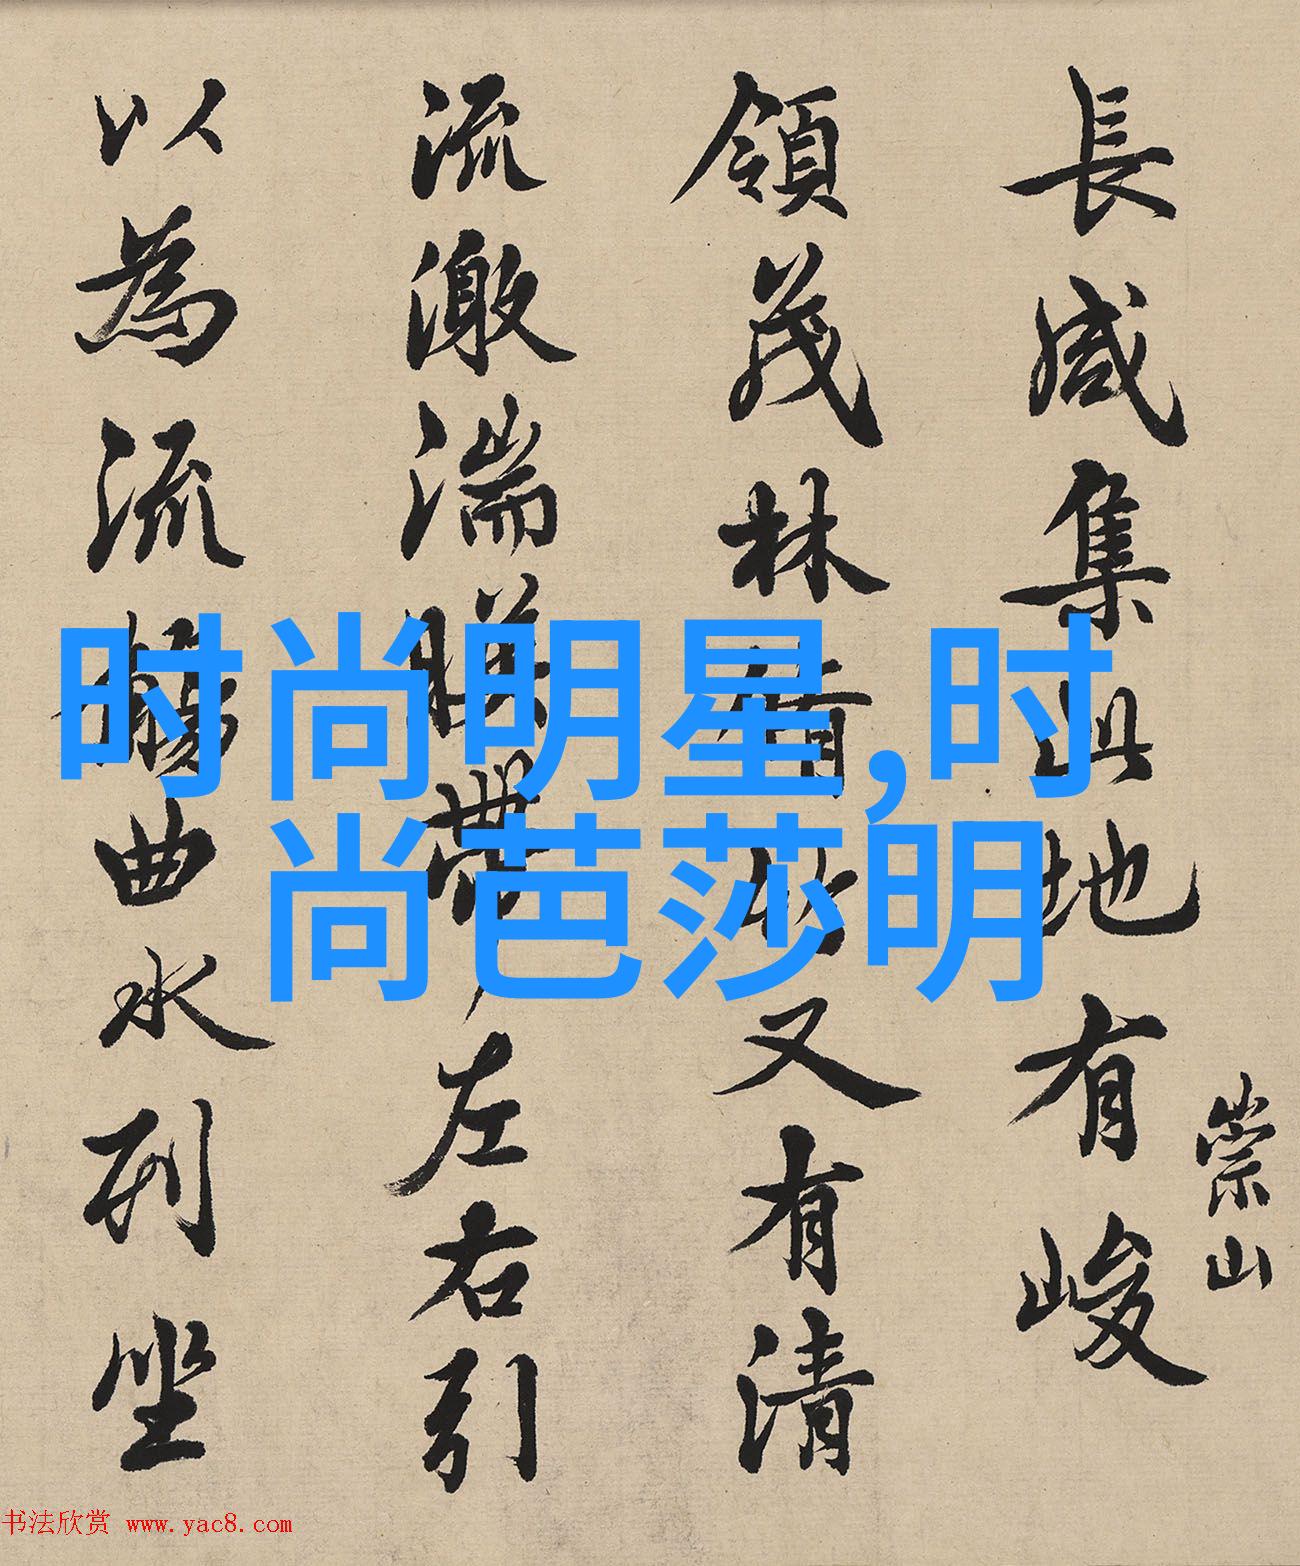 長咸集此地有峻
崇山
領茂林脩竹又有清
流激湍暎帶左右引
以為流觴曲水列坐
时尚明星,时
尚芭莎明
书法欣赏 www.yac8.com